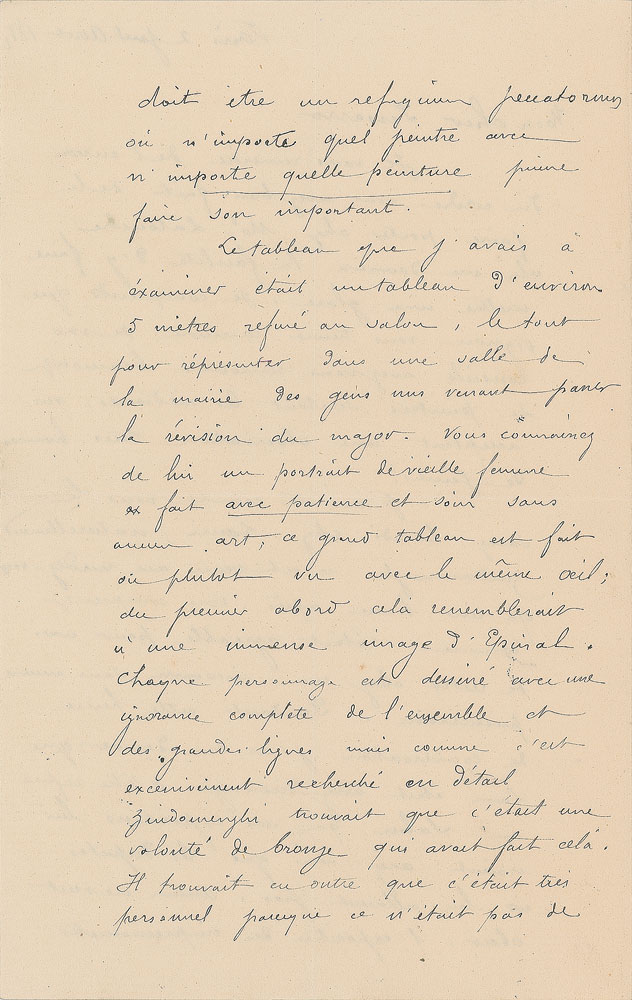 doit etre un refugium peccatorum
où n'importe quel peintre avec
n'importe quelle peinture puisse
faire son important.
Le tableau que j'avais à
éxaminer était un tableau d'environ
5 mètres refusé au salon, le tout
pour réprésenter dans une salle de
la mairie des gens nus venant passer
la révision du major. Vous connaissez
de lui un portrait de vieille femme
fait avec patience et soin sans
aucun art; ce grand tableau est fait
où plutot vu avec le même œil;
du premier abord cela ressemblerait
à une immense image d'Epinal.
Chaque personnage est dessiné avec une
ignorance complète de l'ensemble et
des grandes lignes mais comme c'est
excessivement recherché en détail
Zindomenghi trouvait que c'était une
volonté de bronze qui avait fait celà.
Il trouvait en outre que c'était très
personnel parceque ce n'était pas de